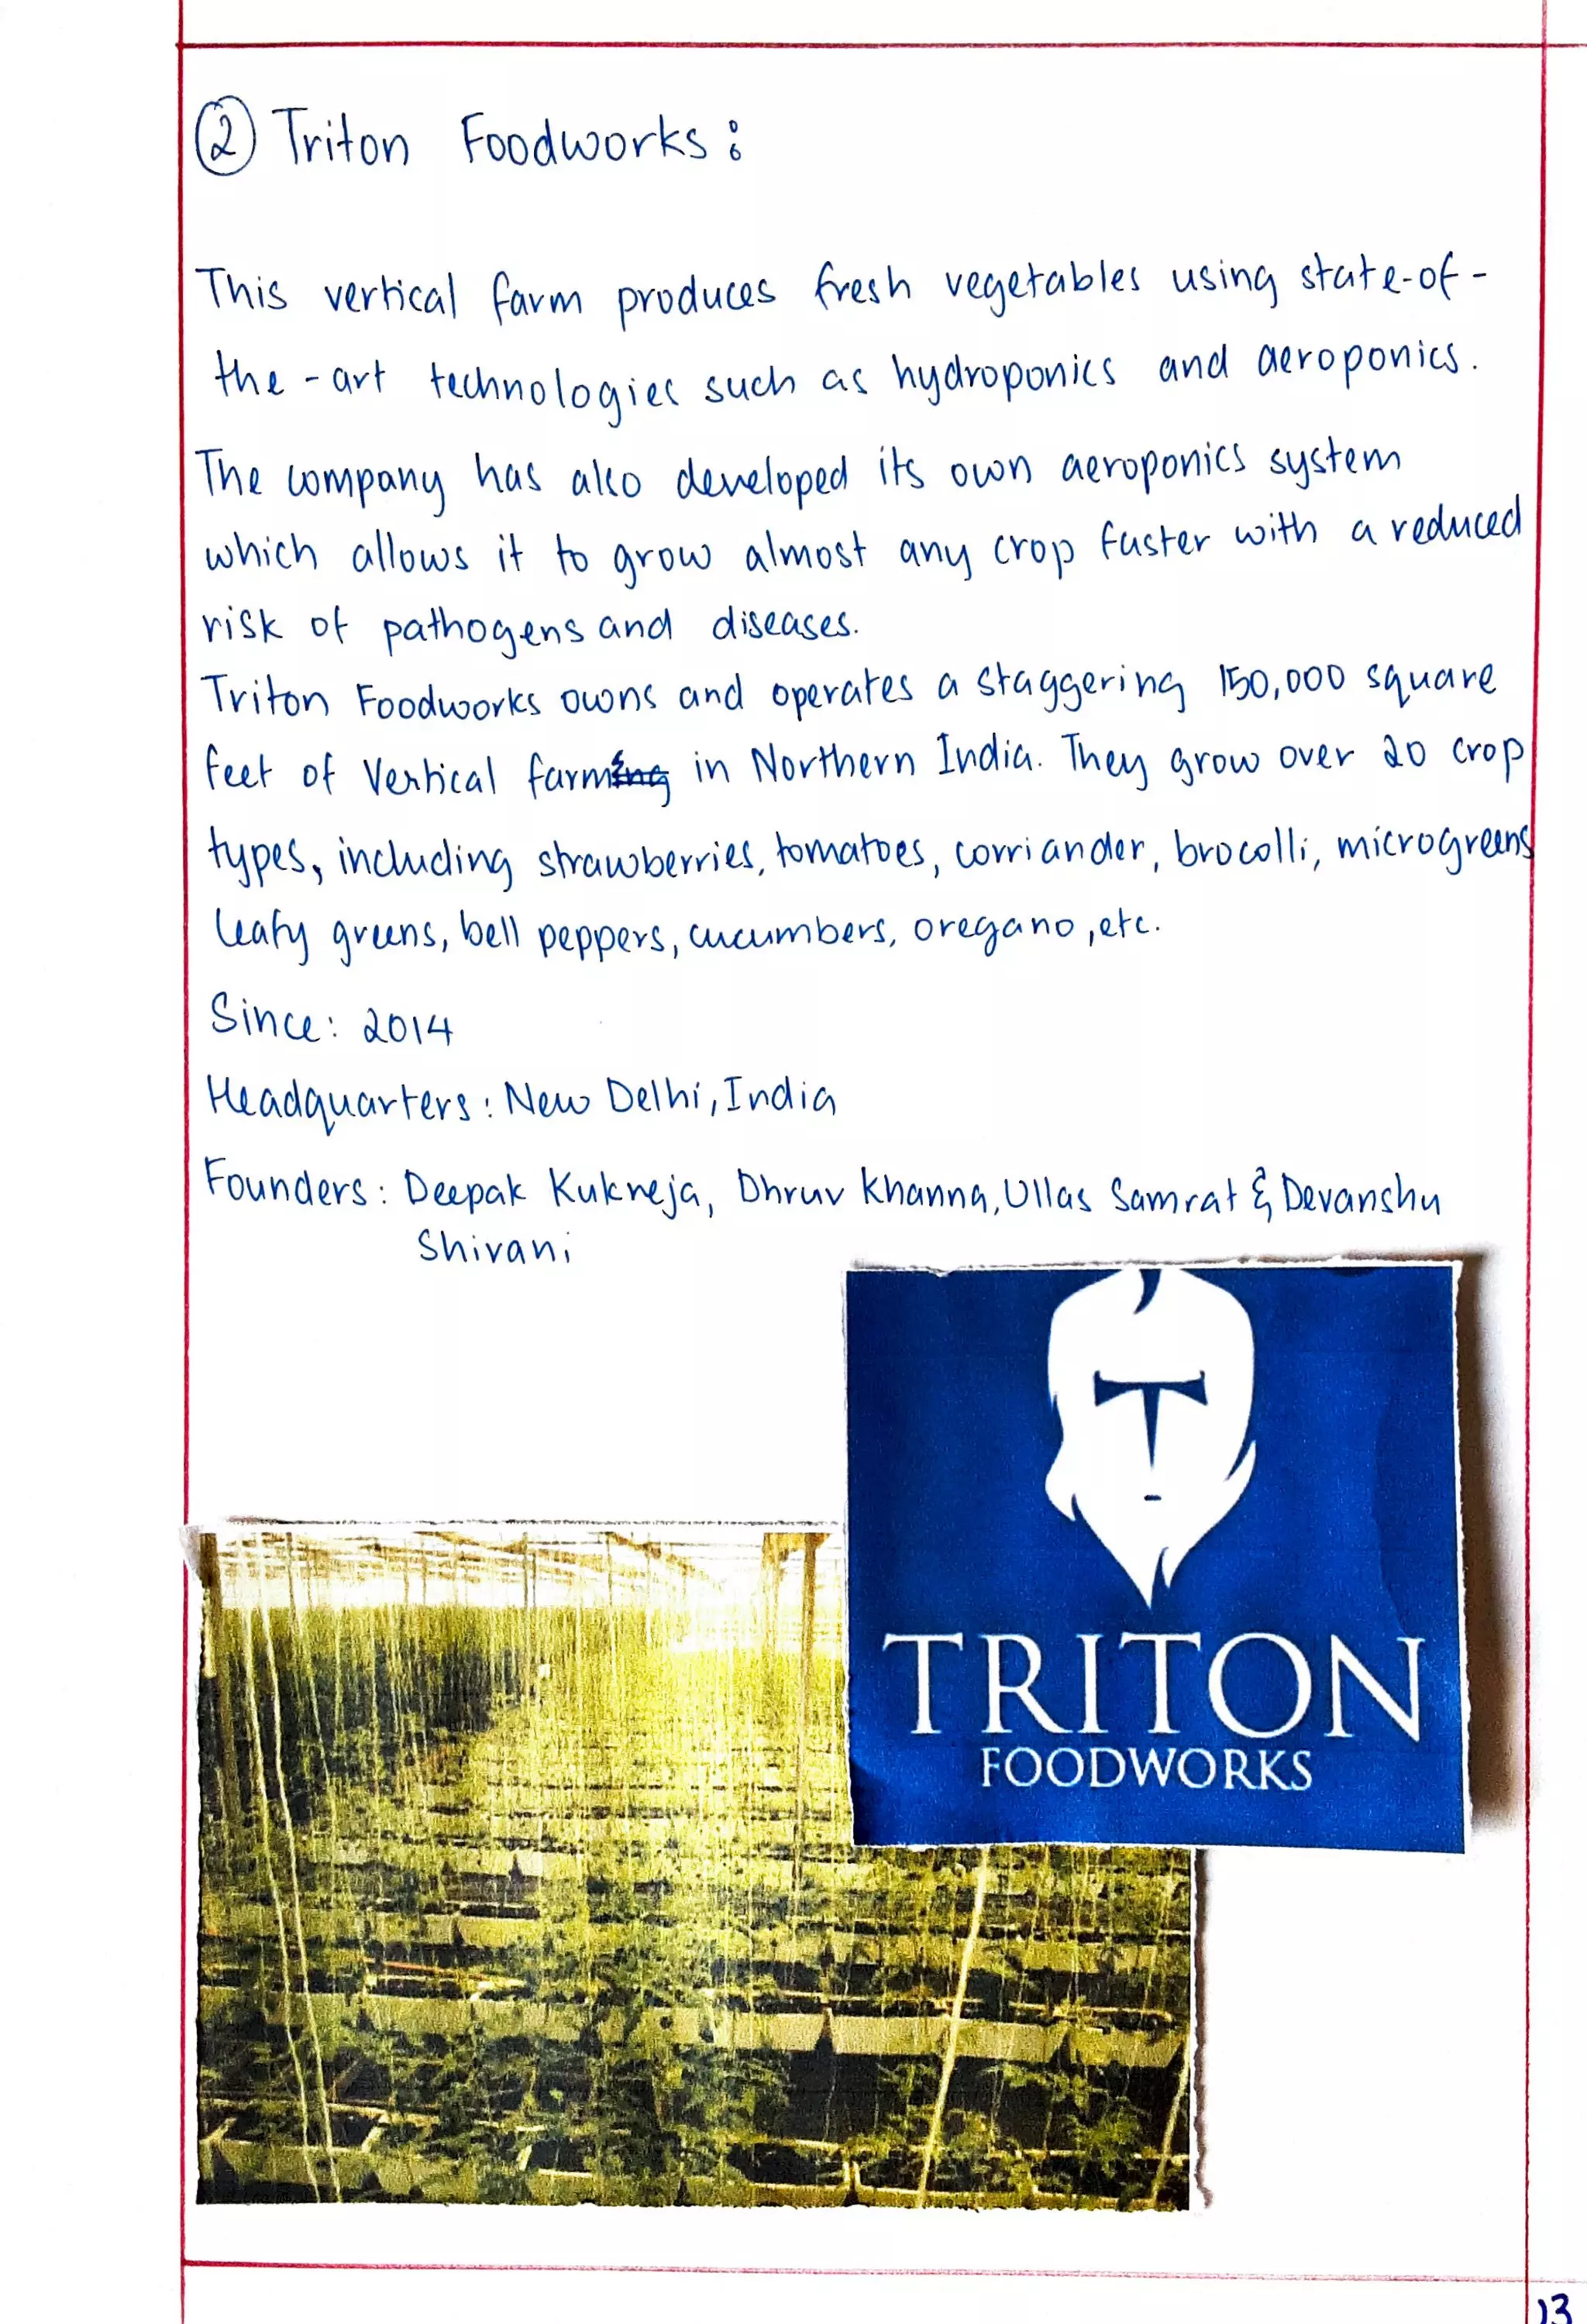 ② Triton Foodworks :
This vertical farm produces fresh vegetables using state-of-
the-art technologies such as hydroponics and aeroponics.
The company has also developed its own aeroponics system
which allows it to grow almost any crop faster with a reduced
risk of pathogens and diseases.
Triton Foodworks owns and operates a staggering 150,000 square
feet of Vertical farming in Northern India. They grow over 20 crop
types, including strawberries, tomatoes, corriander, brocolli, microgreens
leafy greens, bell peppers, cucumbers, oregano, etc.
Since: 2014
Headquarters: New Delhi, India
Founders: Deepak Kukreja, Dhruv Khanna, Ullas Samrat & Devanshu
Shivani
TRITON
FOODWORKS
13